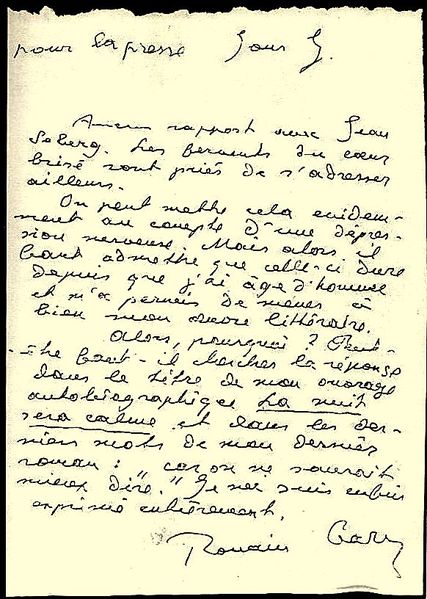 pour la presse Jour J.
Aucun rapport avec Jean
Seberg. Les fervents du cœur
brisé sont priés de s'adresser
ailleurs.
On peut mettre cela évidem-
ment au compte d'une dépres-
sion nerveuse. Mais alors il
faut admettre que celle-ci dure
depuis que j'ai âge d'homme
et m'a permis de mener à
bien mon œuvre littéraire.
Alors, pourquoi ? Peut-
-être faut-il chercher la réponse
dans le titre de mon ouvrage
autobiographique La nuit
sera calme et dans les der-
niers mots de mon dernier
roman : "car on ne saurait
mieux dire." Je me suis enfin
exprimé entièrement.
Romain Gary